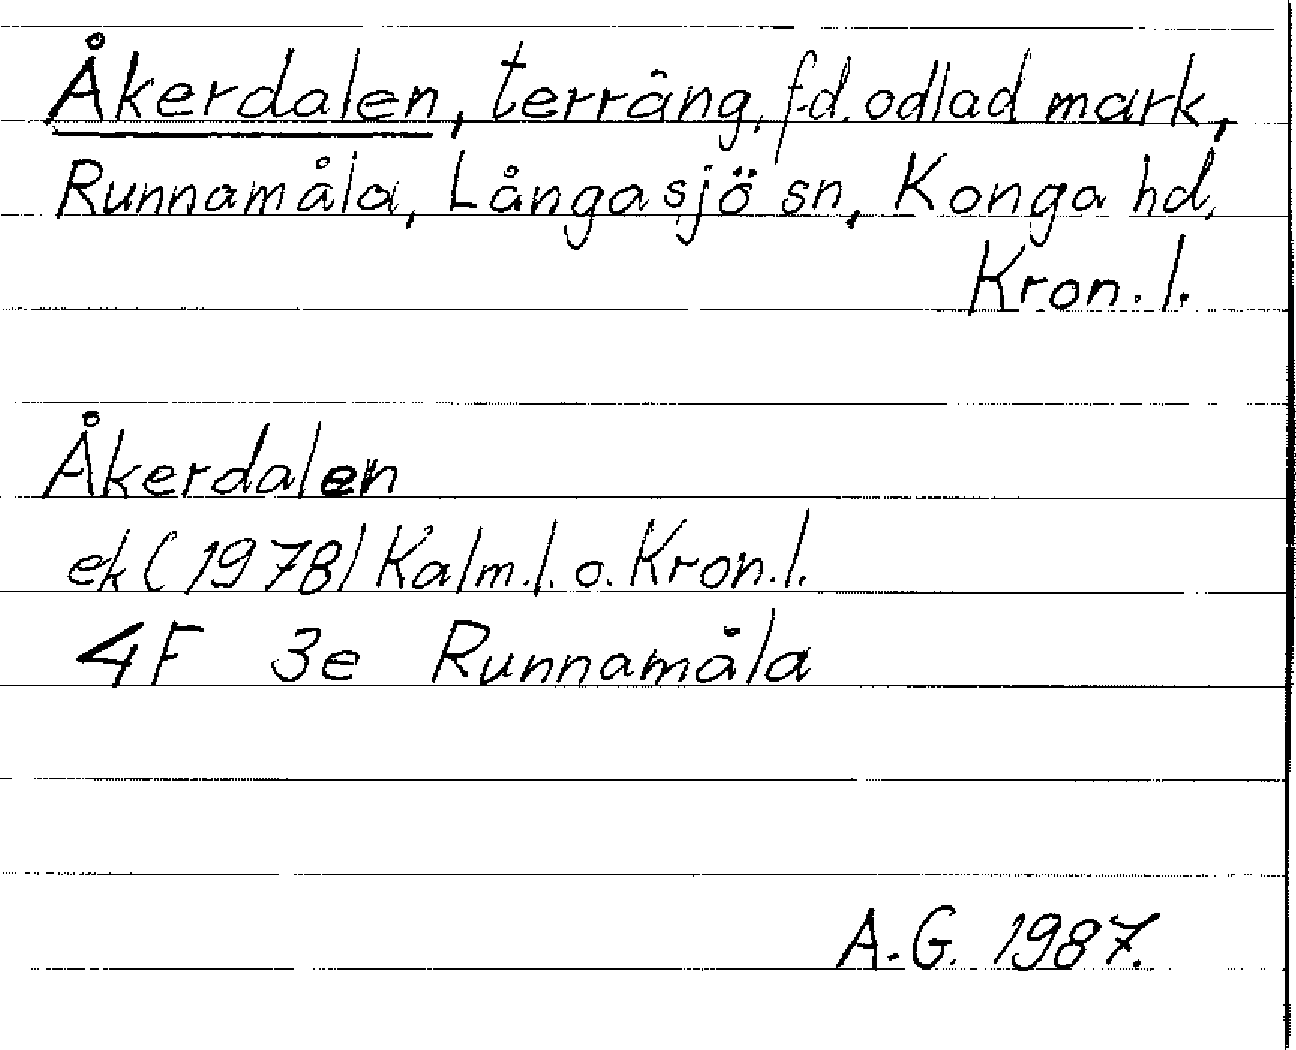 Åkerdalen, terräng, f.d. odlad mark,
Runnamåla, Långasjö sn, Konga hd,
Kron. l.
Åkerdalen
ek (1978) Kalm. l. o. Kron. l.
4F 3e Runnamåla
A.G. 1987.